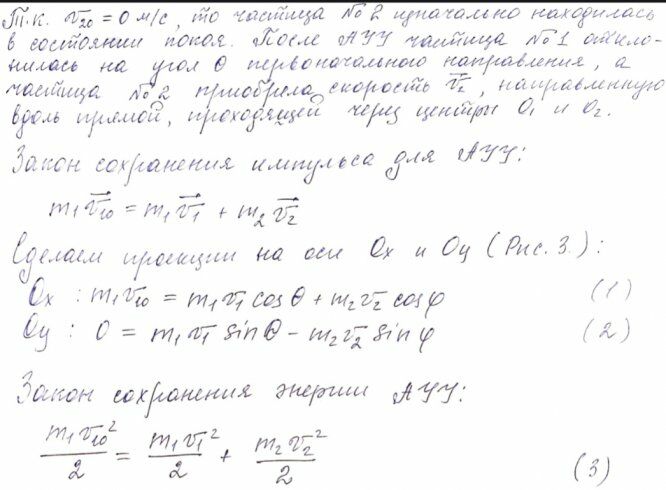 Т.к. v₂₀ = 0 м/с, то частица №2 изначально находилась
в состоянии покоя. После АУУ частица №1 откло-
нилась на угол θ первоначального направления, а
частица №2 приобрела скорость v⃗₂, направленную
вдоль прямой, проходящей через центры O₁ и O₂.
Закон сохранения импульса для АУУ:
m₁v⃗₁₀ = m₁v⃗₁ + m₂v⃗₂
Сделаем проекции на оси Ox и Oy (Рис. 3.):
Ox : m₁v₁₀ = m₁v₁ cosθ + m₂v₂ cosφ (1)
Oy : 0 = m₁v₁ sinθ - m₂v₂ sinφ (2)
Закон сохранения энергии АУУ:
m₁v₁₀²/2 = m₁v₁²/2 + m₂v₂²/2 (3)